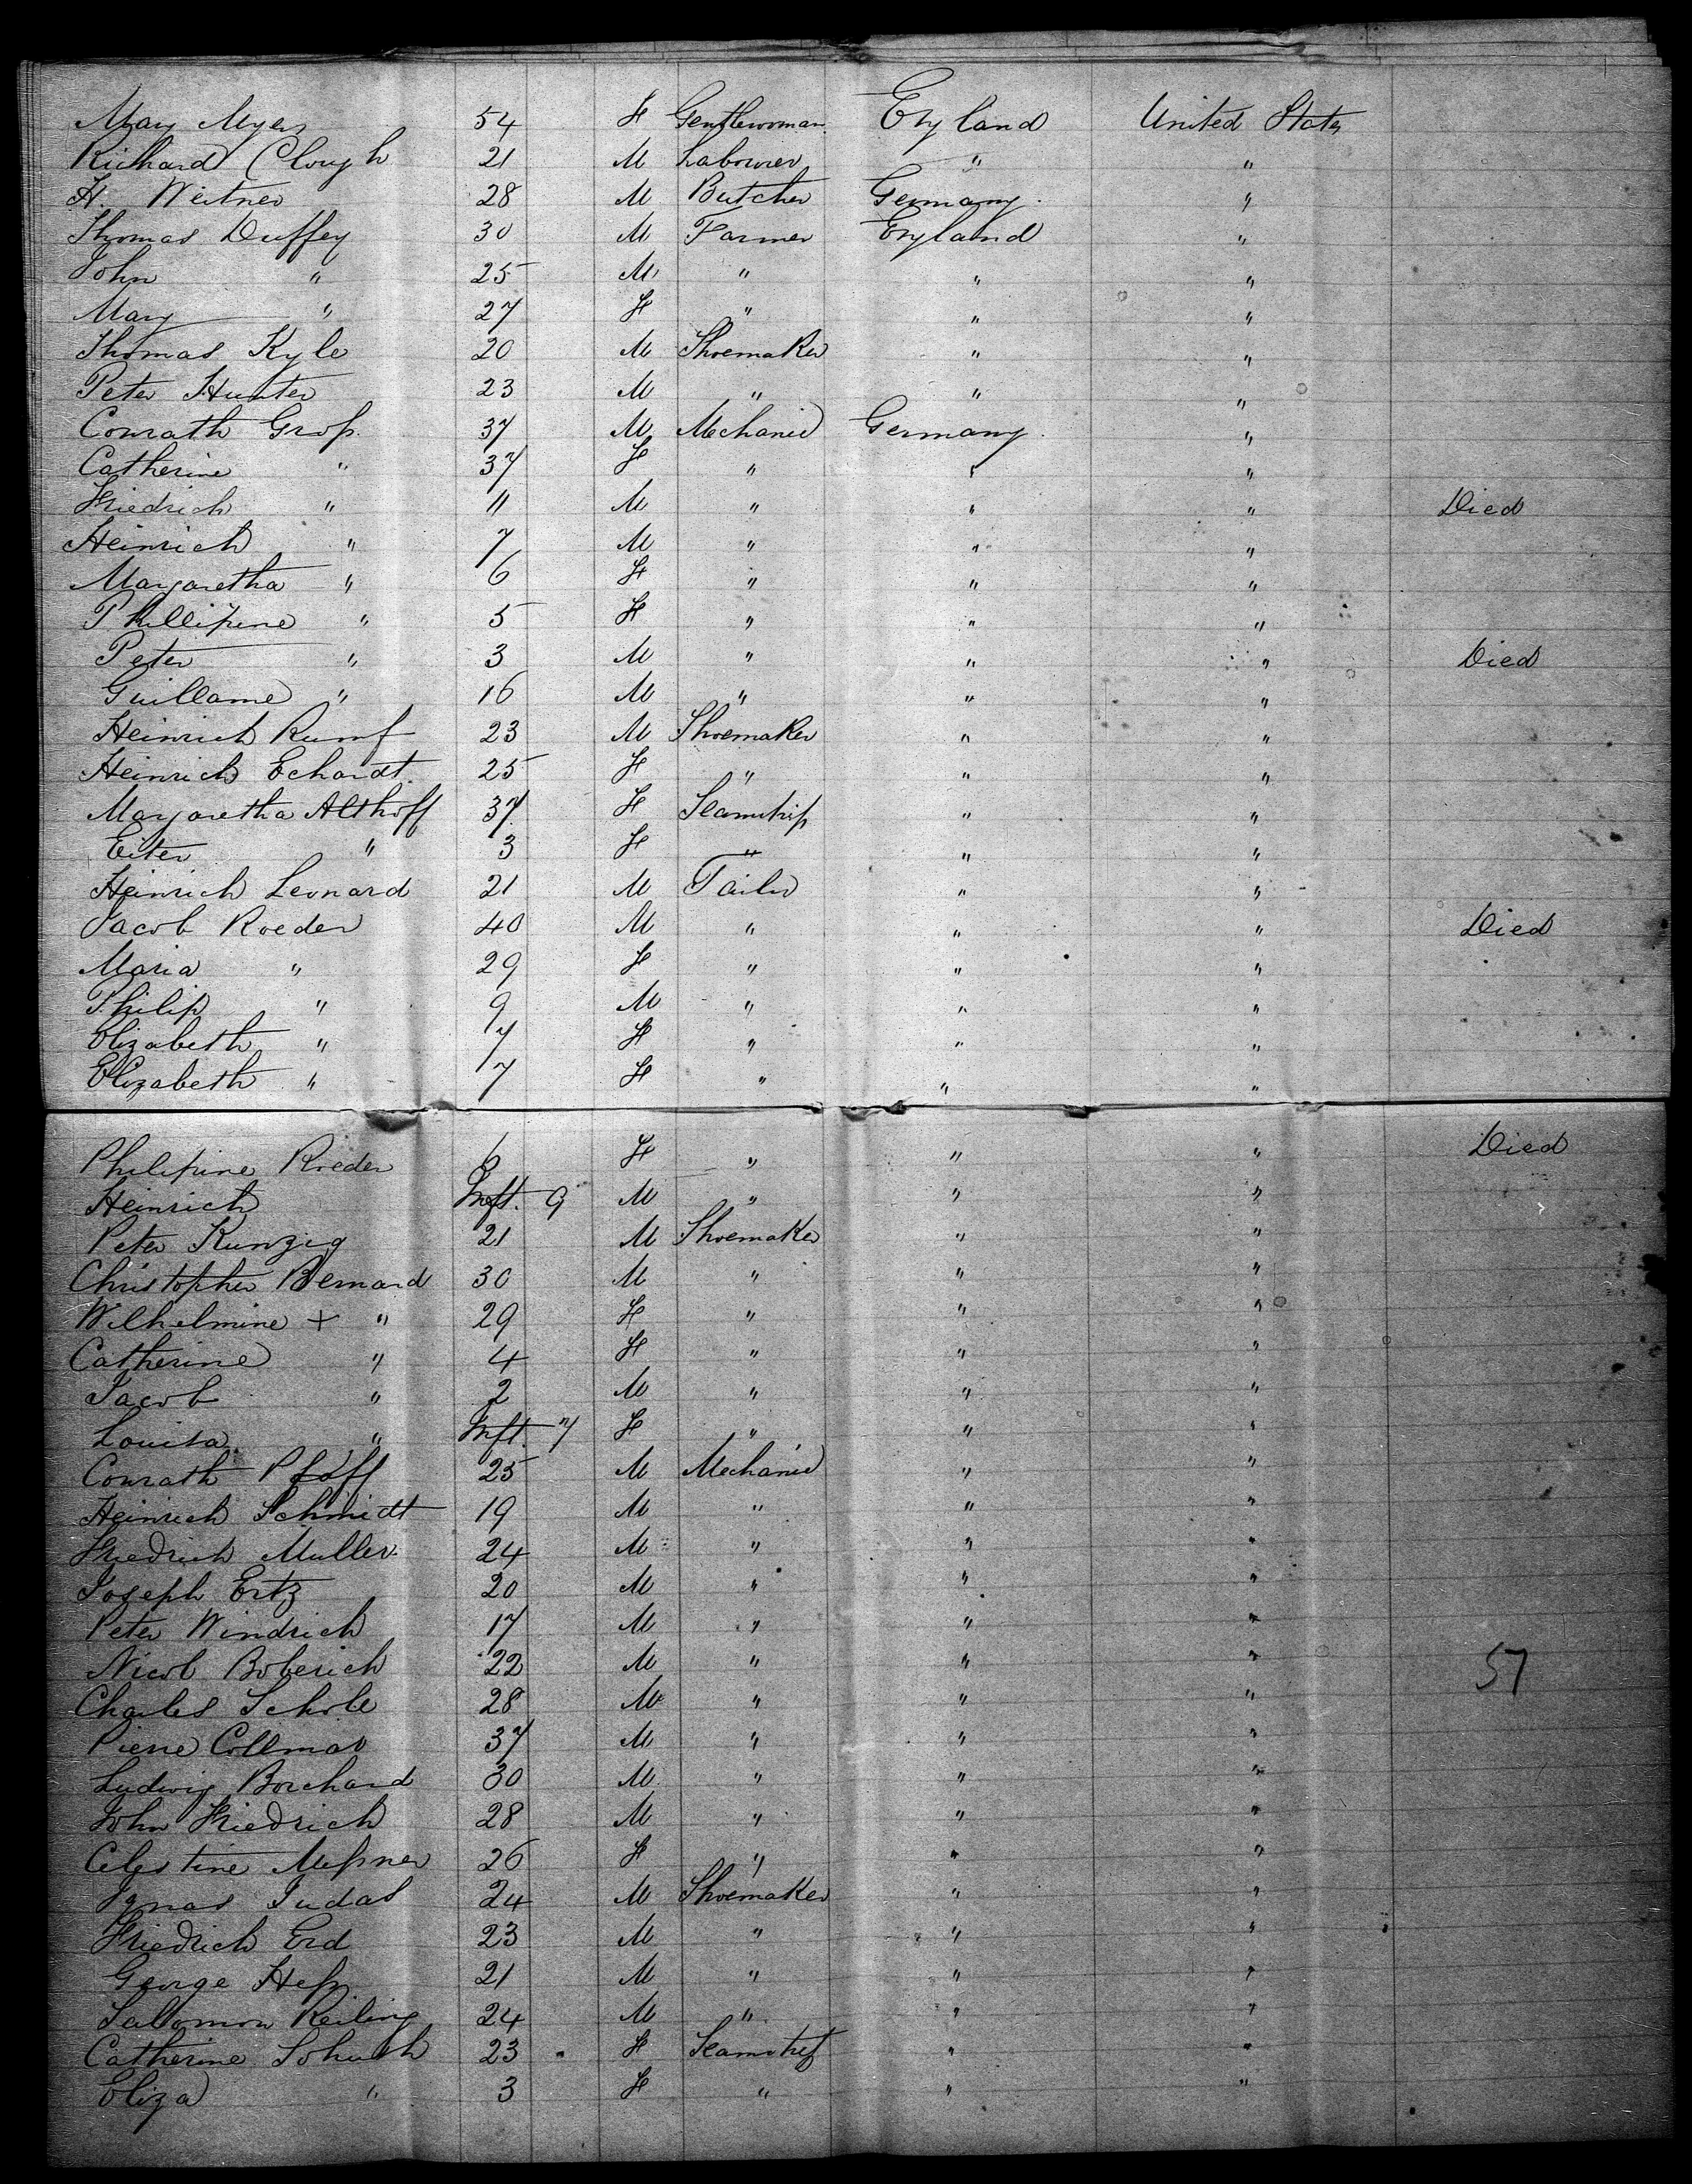 Mary Myers 54 F Gentlewoman England United States
Richard Clough 21 M Labourer " "
H. Weitner 28 M Butcher Germany. "
Thomas Duffey 30 M Farmer England "
John " 25 M " " "
Mary " 27 F " " "
Thomas Kyle 20 M Shoemaker " "
Peter Hunter 23 M " " "
Conrath Groß. 37 M Mechanic Germany. "
Catherine " 37 F " " "
Friedrich " 11 M " " " Died
Heinrich " 7 M " " "
Margaretha " 6 F " " "
Phillipine " 5 F " " "
Peter " 3 M " " " Died
Guillame " 16 M " " "
Heinrich Rumf 23 M Shoemaker " "
Heinrich Echardt. 25 F " " "
Margaretha Althoff 37 F Seamstriß " "
" 3 F " " "
Heinrich Leonard 21 M Tailor " "
Jacob Roeder 40 M " " " Died
Maria " 29 F " " "
Philip " 9 M " " "
Elizabeth " 7 F " " "
Elizabeth " 7 F " " "
Philipine Roeder 6 F " " " Died
Heinrich Inft. 9 M " " "
Peter Kunzig 21 M Shoemaker " "
Christopher Bernard 30 M " " "
Wilhelmine + " 29 F " " "
Catherine " 4 F " " "
Jacob " 2 M " " "
Louisa " Inft. 7 F " " "
Conrath Pfaff 25 M Mechanic " "
Heinrich Schmidt 19 M " " "
Friedrich Muller 24 M " " "
Joseph Ertz 20 M " " "
Peter Windrich 17 M " " "
Nicol Boberich 22 M " " " 57
Charles Schole 28 M " " "
Pierre Collmar 37 M " " "
Ludwig Borchard 30 M " " "
John Friedrich 28 M " " "
Celestine Meßner 26 F " " "
Ignas Judas 24 M Shoemaker " "
Friedrich Erd 23 M " " "
George Heß 21 M " " "
Salomon Reiling 24 M " " "
Catherine 23 F " "
Eliza " 3 F " " "